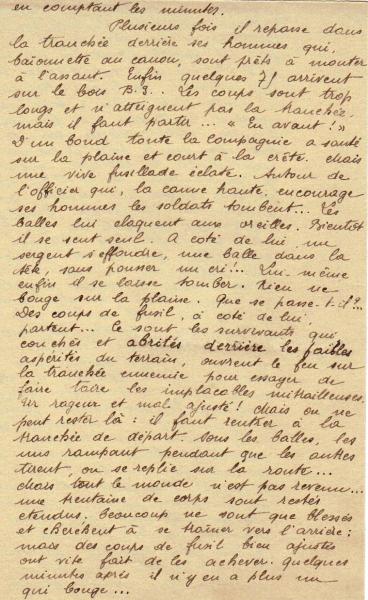 en comptant les minutes.
Plusieurs fois il repasse dans
la tranchée derrière ses hommes qui,
baïonnette au canon, sont prêts à monter
à l'assaut. Enfin quelques 75 arrivent
sur le bois B.3.. Les coups sont trop
longs et n'atteignent pas la tranchée,
mais il faut partir... "En avant!"
D'un bond toute la compagnie a sauté
sur la plaine et court à la crête. Mais
une vive fusillade éclate. Autour de
l'officier qui, la canne haute, encourage
ses hommes les soldats tombent... Les
balles lui claquent aux oreilles. Bientôt
il se sent seul. A coté de lui un
sergent s'effondre, une balle dans la
tête, sans pousser un cri!.. Lui-même
enfin il se laisse tomber. Rien ne
bouge sur la plaine. Que se passe-t-il?..
Des coups de fusil, à coté de lui,
partent... Ce sont les survivants qui
couchés et abrités derrière les faibles
aspérités du terrain, ouvrent le feu sur
la tranchée ennemie pour essayer de
faire taire les implacables mitrailleuses.
Tir rageur et mal ajusté! Mais on ne
peut rester là: il faut rentrer à la
tranchée de départ. Sous les balles, les
uns rampant pendant que les autres
tirent, on se replie sur la route...
Mais tout le monde n'est pas revenu...
une trentaine de corps sont restés
étendus. Beaucoup ne sont que blessés
et cherchent à se traîner vers l'arrière;
mais des coups de fusil bien ajustés
ont vite fait de les achever. Quelques
minutes après il n'y en a plus un
qui bouge...